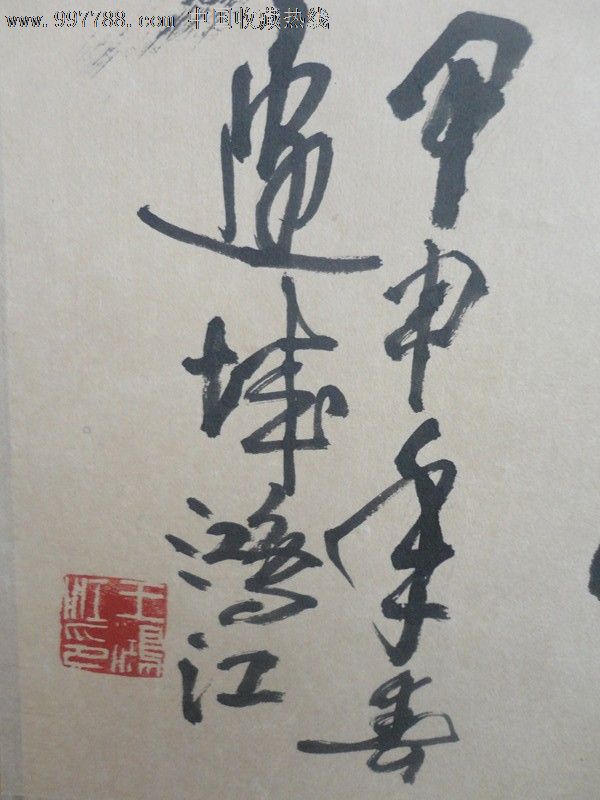 www.997788.com 中国收藏热线
甲申年春
邊城鴻江
王鴻江印